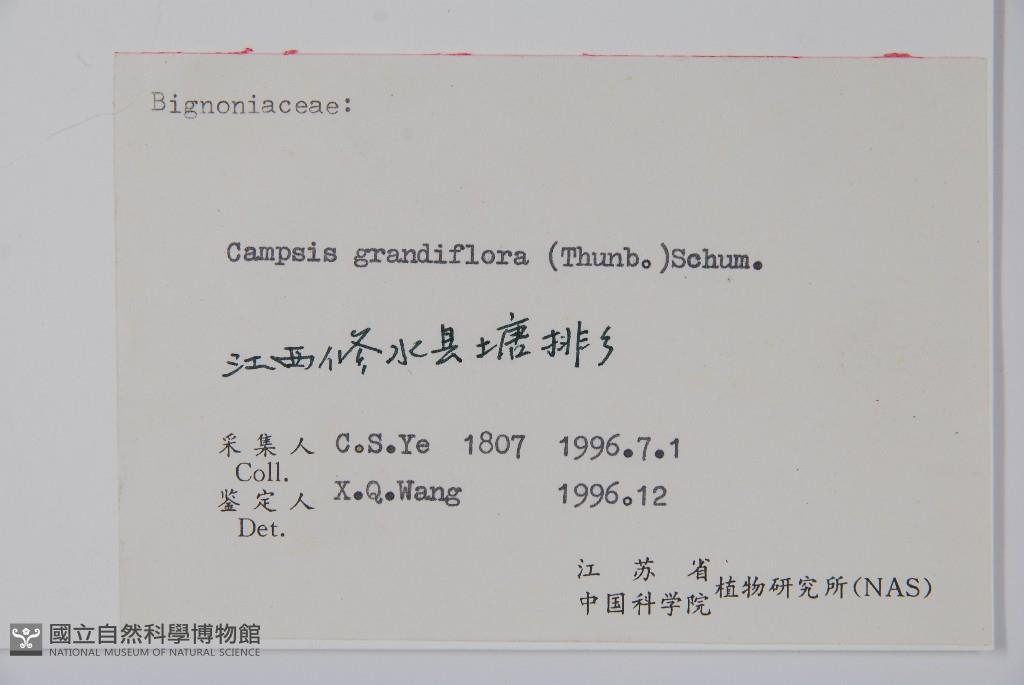 Bignoniaceae:
Campsis grandiflora (Thunb.)Schum.
江西修水县塘排乡
采集人 C.S.Ye 1807 1996.7.1
Coll.
鉴定人 X.Q.Wang 1996.12
Det.
江苏省
中国科学院植物研究所(NAS)
國立自然科學博物館
NATIONAL MUSEUM OF NATURAL SCIENCE